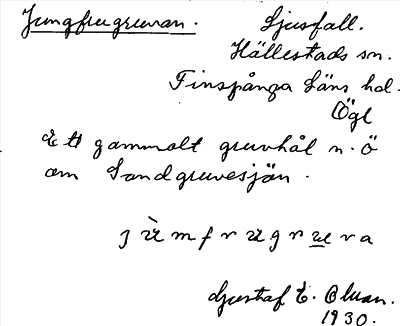 Jungfrugruvan. Ljusfall.
Hällestads sn.
Finspånga läns hd.
Ögl
Ett gammalt gruvhål n. ö
om Sandgruvesjön.
Gustaf E. Olsson.
1930.